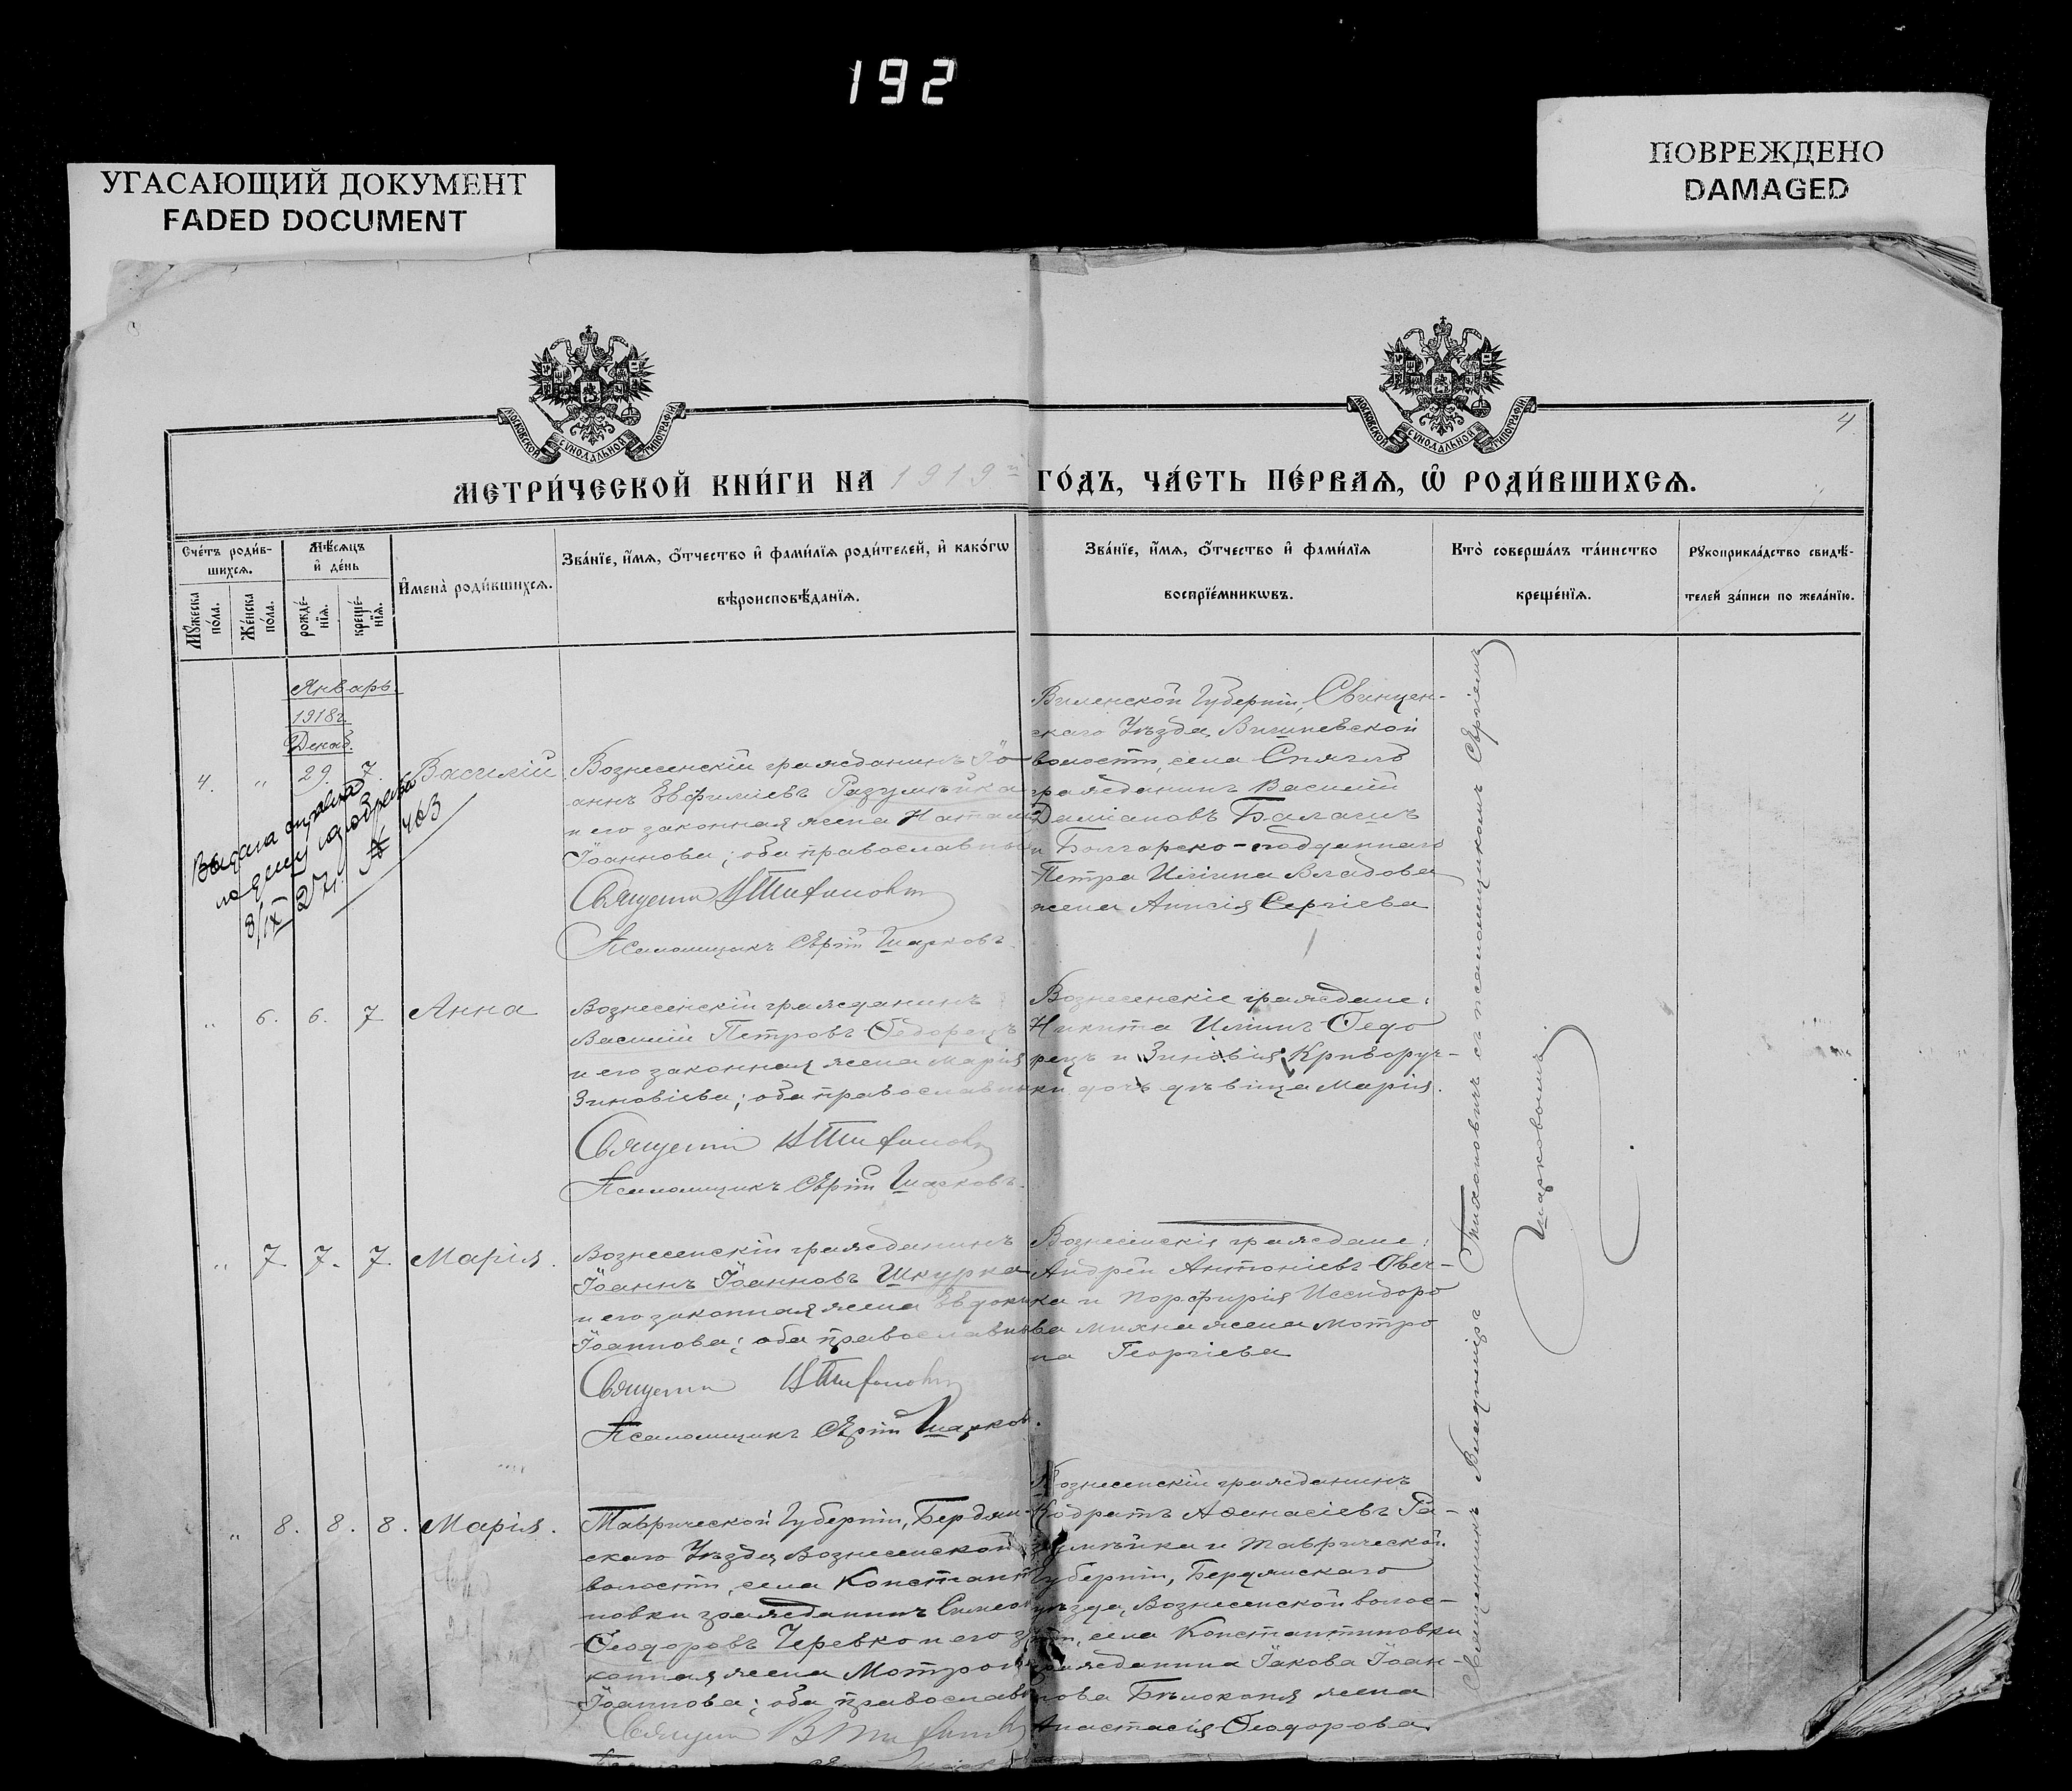 192
УГАСАЮЩИЙ ДОКУМЕНТ
FADED DOCUMENT
ПОВРЕЖДЕНО
DAMAGED
МОСКОВСКОЙ СѴНОДАЛЬНОЙ ТИПОГРАФІИ
МОСКОВСКОЙ СѴНОДАЛЬНОЙ ТИПОГРАФІИ
4
МЕТРИ́ЧЕСКОЙ КНИ́ГИ НА 1919й ГО́ДЪ, ЧА́СТЬ ПЕ́РВАѦ, Ѡ҆ РОДИ́ВШИХСѦ.
Сче́тъ роди́в-
шихсѧ.
Мѣ́сѧцъ
и҆ де́нь
Мꙋ́жеска
по́ла.
Же́нска
по́ла.
рожде́-
нїѧ.
креще́-
нїѧ.
И҆мена̀ роди́вшихсѧ.
Зва́нїе, и҆́мѧ, ѻ҆́тчество и҆ фами́лїѧ роди́телей, и҆ како́гѡ
вѣроисповѣ́данїѧ.
Зва́нїе, и҆́мѧ, ѻ҆́тчество и҆ фами́лїѧ
воспрїе́мникѡвъ.
Кто̀ соверша́лъ та́инство
креще́нїѧ.
Рꙋкоприкла́дство свидѣ́-
телей за́писи по жела́нїю.
Январь.
1918г.
Декаб.
4. " 29. 7. Василій
Выдана справка
8/IX 27 г. № 463
Вознесенскій гражданинъ Іо
аннъ Евфиміевъ Разумѣйка
и его законная жена Натал
Іоаннова; оба православные
Священ ВТихонович
Псаломщикъ Сергій Шарковъ.
Виленской Губерніи, Свинцен-
скаго Уѣзда, Вишневской
волости, села Спяглъ
гражданинъ Василій
Даміановъ Балагилъ
и Болгарско-подданнаго
Петра Иліина Владова
жена Анисія Сергіева
" 6. 6. 7 Анна
Вознесенскій гражданинъ
Василій Петровъ Федорецъ
и его законная жена Марія
Зиновіева; оба православны
Священ ВТихонович
Псаломщикъ Сергій Шарковъ.
Вознесенскіе граждане:
Никита Иліинъ Федо
рецъ и Зиновія Криворуч-
ки дочь дѣвица Марія.
" 7. 7. 7. Марія.
Вознесенскій гражданинъ
Іоаннъ Іоанновъ Шкурка
и его законная жена Евдоки
Іоаннова; оба православны
Священ ВТихонович
Псаломщикъ Сергій Шарков.
Вознесенскія граждане:
Андрей Антоніевъ Овеч-
ка и Порфирія Исидоро
ва Михна жена Мотро
на Георгіева
" 8. 8. 8. Марія.
Таврической Губерніи, Бердян-
скаго Уѣзда, Вознесенской
волости, села Константи
новки гражданинъ Симеон
Феодоровъ Черевко и его за
конная жена Мотрона
Іоаннова; оба православн
Священ ВТихонович
Вознесенскій гражданинъ
Кодратъ Афанасіевъ Ра-
зумѣйка и Таврической
Губерніи, Бердянскаго
уѣзда, Вознесенской волос-
ти, села Константиновки
гражданина Іакова Іоан-
нова Бѣлоконя жена
Анастасія Феодорова
Священникъ Владиміръ Тихоновичъ съ псаломщикомъ Сергіемъ
Шарковымъ.